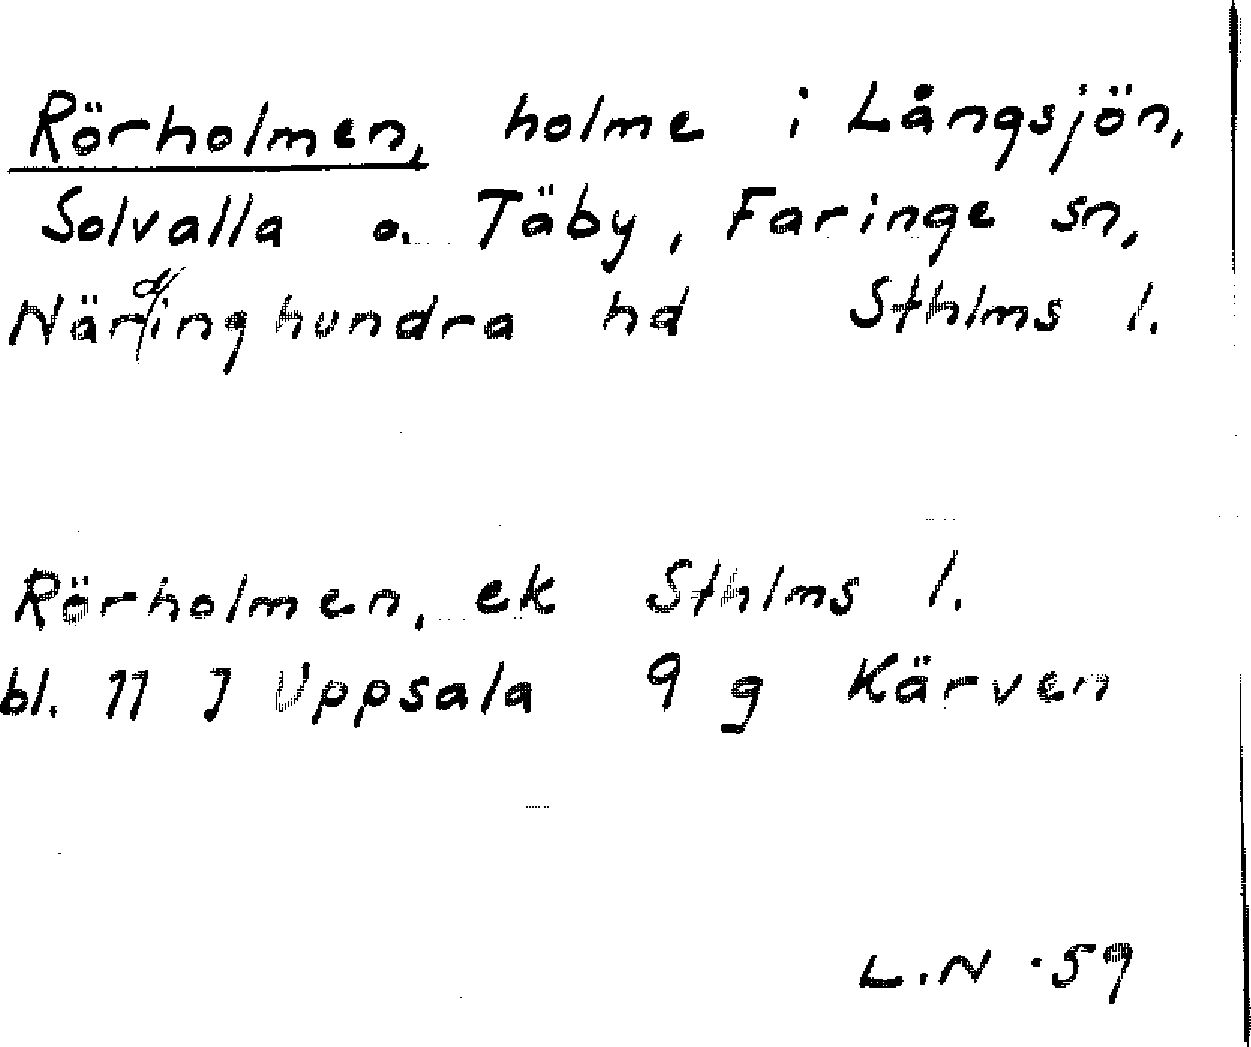 Rörholmen, holme i Långsjön,
Solvalla o. Täby, Faringe sn,
Närdinghundra hd Sthlms l.
Rörholmen, ek Sthlms l.
bl. 11 J Uppsala 9 g Kärven
L.N -59